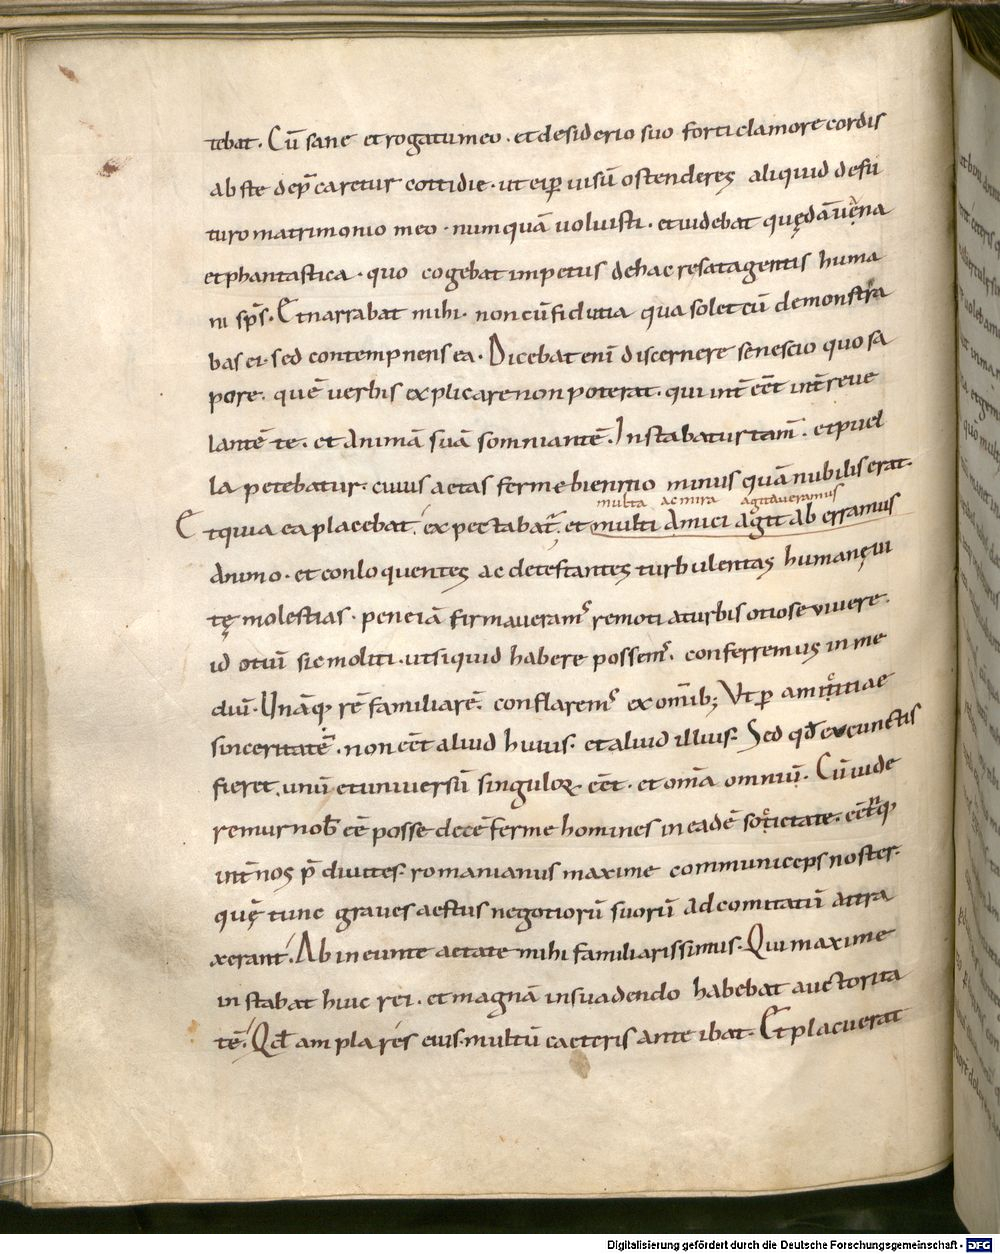 tebat. Cū sane et rogatu meo. et desiderio suo forti clamore cordis
abste dep̄caretur cottidie. ut ei ꝑ uisū ostenderes aliquid de fu
turo matrimonio meo. numquā uoluisti. et uidebat quędā uana
et phantastica. quo cogebat impetus de hac re satagentis huma
ni sp̄s. Et narrabat mihi. non cū fidutia qua solet cū demonstra
bas ei. sed contempnens ea. Dicebat eni discernere se nescio quo sa
pore. quē uerbis explicare non poterat. qui int̄ eēt int̄ reue
lantē te. et animā suā somniantē. Instabatur tam̄. et puel
la petebatur. cuius aetas ferme biennio minus quā nubilis erat.
multa ac mira agitaueramus
Et quia ea placebat. expectabat̄. et multi amici agit ab erramus
animo. et conloquentes ac detestantes turbulentas humanę ui
tę molestias. pene iā firmaueram᷒ remoti a turbis otiose uiuere.
id otiū sic moliti. ut si quid habere possem᷒. conferremus in me
diū. Unāq; rē familiarē. conflarem᷒ ex omīb; Ut ꝑ amicitiae
sinceritatē. non eēt aliud huius. et aliud illius. Sed qđ ex cunctis
fieret. unū et uniuersū singuloꝝ eēt. et omīa omniū. Cū uide
remur nob̄ eē posse decē ferme homines in eadē sotietate. eēntq;
int̄ nos p̄diuites. romanianus maxime communiceps noster.
quē tunc graues aestus negotiorū suorū ad comitatū attra
xerant. Ab ineunte aetate mihi familiarissimus. Qui maxime
instabat huic rei. et magnā in suadendo habebat auctorita
tē. Qđ ampla res eius. multū caeteris ante ibat. Et placuerat